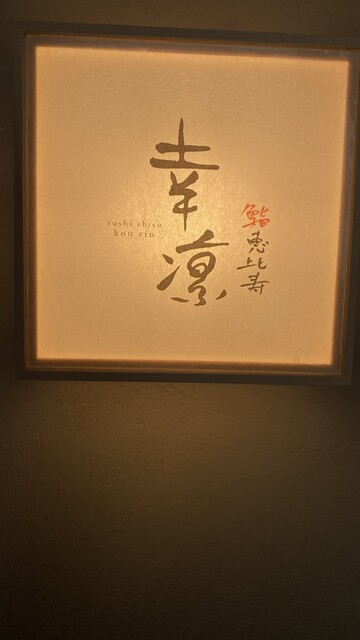 幸凛
sushi ebisu
kou rin
鮨恵比寿